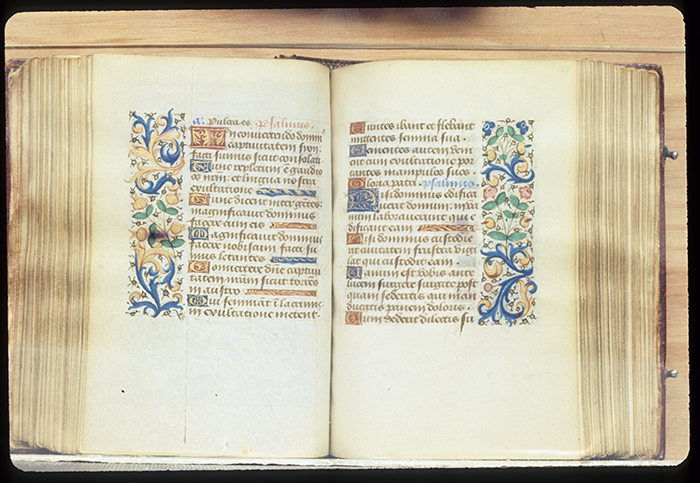 a. Pulcra es. psalmus.
In convertendo domin9
captivitatem syon:
facti sumus sicut consolati.
Tunc repletum ē gaudio
os nrm: et lingua nostra
exultatione
Tunc dicet inter gentes:
magnificavit dominus
facere cum eis
Magnificavit dominus
facere nobiscum: facti su
mus letantes
Convertere dñe captivi
tatem nram: sicut torres
in austro
Qui seminant ī lacrimis
in exultatione metent.
Euntes ibant et flebant
mittentes semina sua.
Venientes autem veni
ent cum exultatione por
tantes manipulos suos.
Gloria patri. psalmus.
Nisi dominus edifica
verit domum: in va
num laboraverunt qui e
dificant eam
Nisi dominus custodie
rit civitatem: frustra vigi
lat qui custodit eam.
Vanum est vobis ante
lucem surgere: surgite post
quam sederitis qui man
ducatis panem doloris.
Cum dederit dilectis su